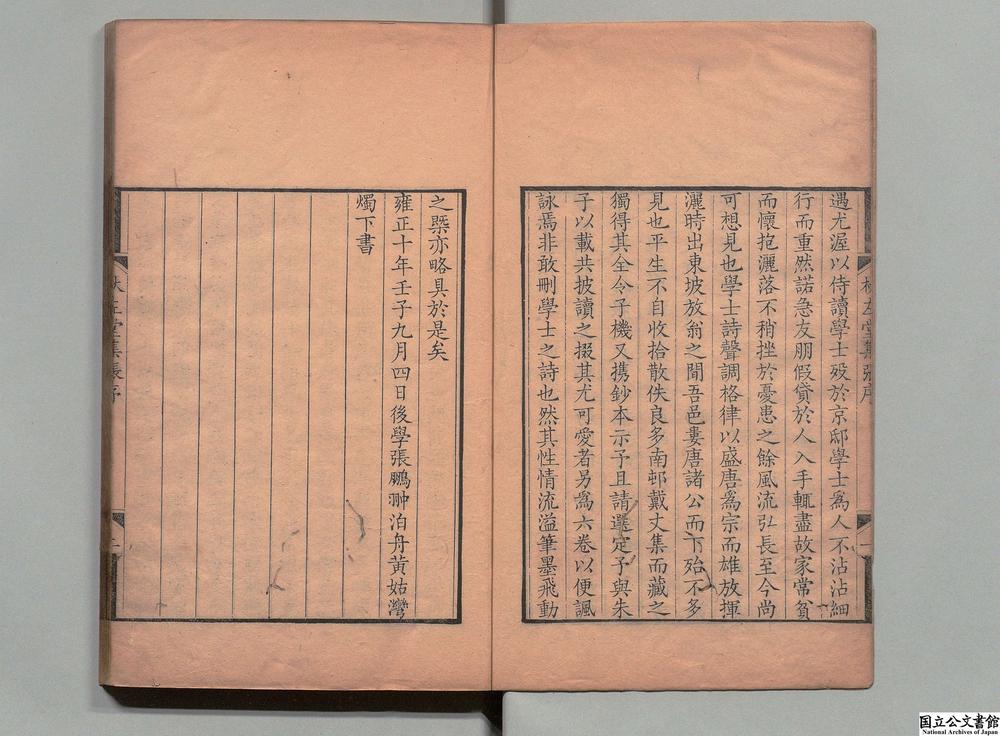 遇尤渥以侍讀學士殁於京邸學士爲人不沾沾細
行而重然諾急友朋假貸於人入手輒盡故家常貧
而懷抱灑落不稍挫於憂患之餘風流弘長至今尚
可想見也學士詩聲調格律以盛唐爲宗而雄放揮
灑時出東坡放翁之間吾邑婁唐諸公而下殆不多
見也平生不自收拾散佚良多南邨戴丈集而藏之
獨得其全今子機又携鈔本示予且請選定予與朱
子以載共披讀之掇其尤可愛者另爲六卷以便諷
詠焉非敢刪學士之詩也然其性情流溢筆墨飛動
之槩亦略具於是矣
雍正十年壬子九月四日後學張鵬翀泊舟黃姑灣
燭下書
左堂集張序
左堂集張序
国立公文書館
National Archives of Japan